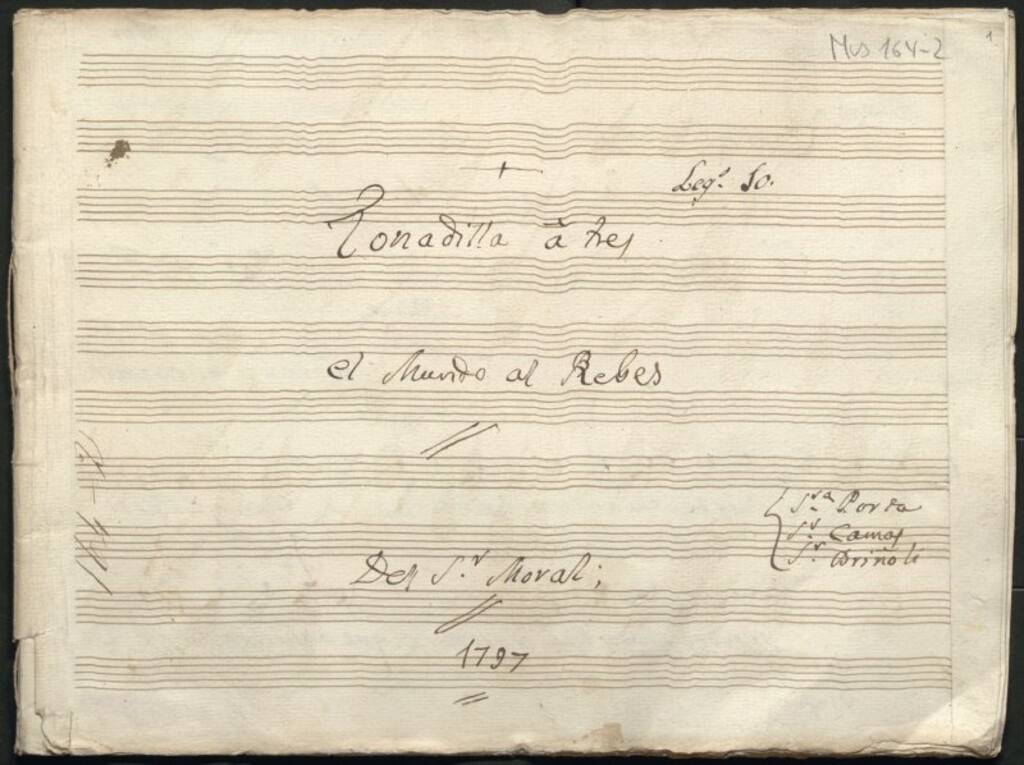 Mus 164-2
1
Leg.º 10.
Tonadilla à tres
el Mundo al Rebes
S.ra Porta
S.r Camas
S.r Briñoli
Del S.r Moral;
1797